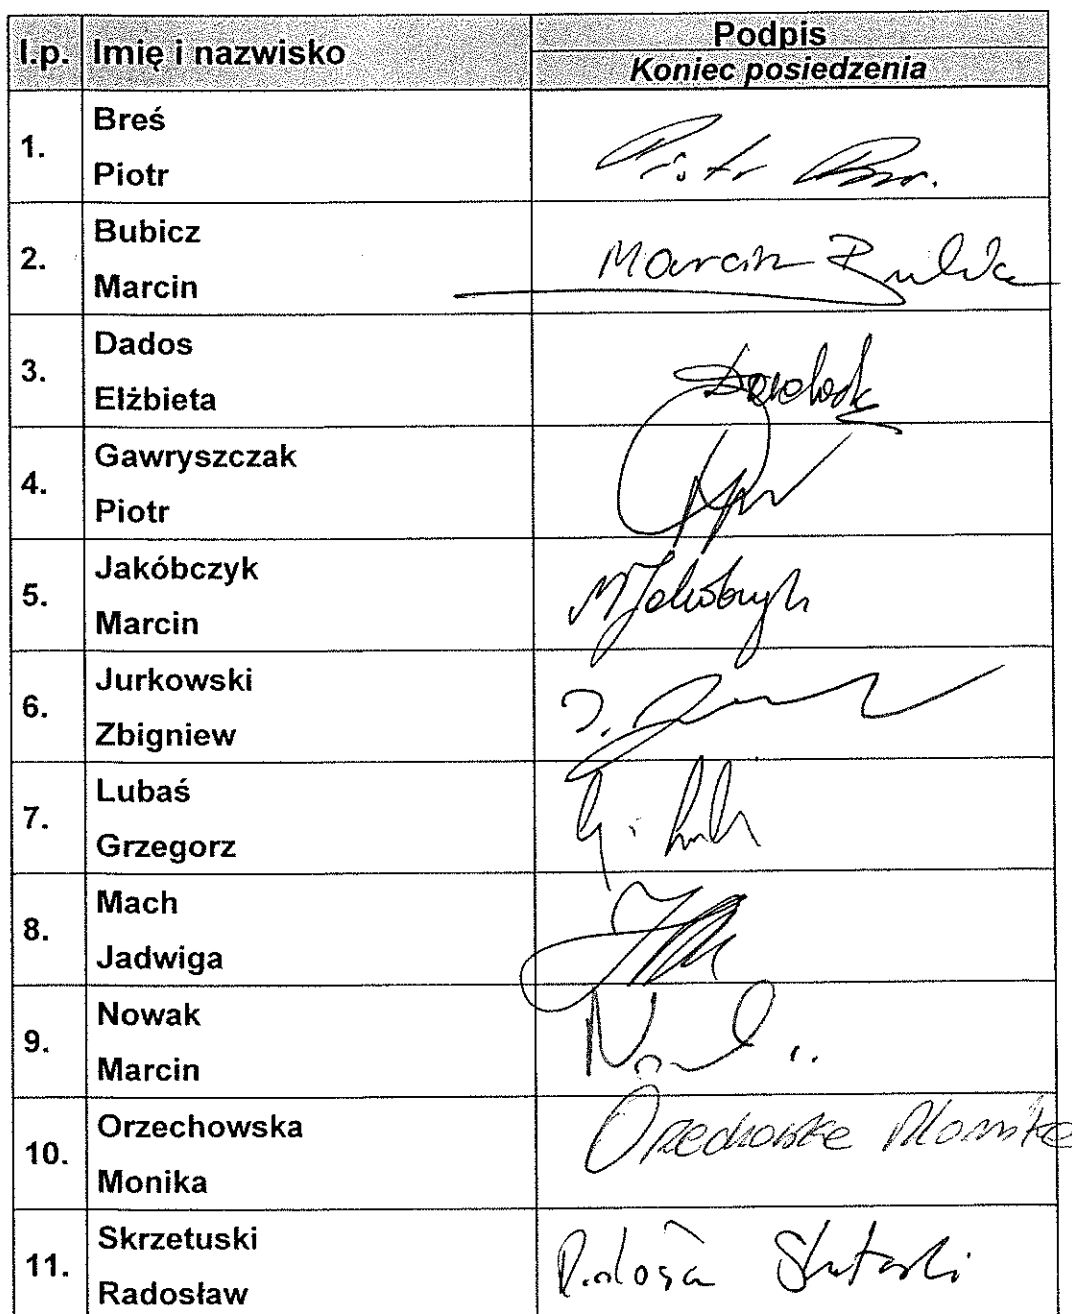 l.p. Imię i nazwisko Podpis
Koniec posiedzenia
1. Breś
Piotr
Piotr
2. Bubicz
Marcin
Marcin
3. Dados
Elżbieta
4. Gawryszczak
Piotr
5. Jakóbczyk
Marcin
6. Jurkowski
Zbigniew
7. Lubaś
Grzegorz
8. Mach
Jadwiga
9. Nowak
Marcin
10. Orzechowska
Monika
Orzechowska Monika
11. Skrzetuski
Radosław